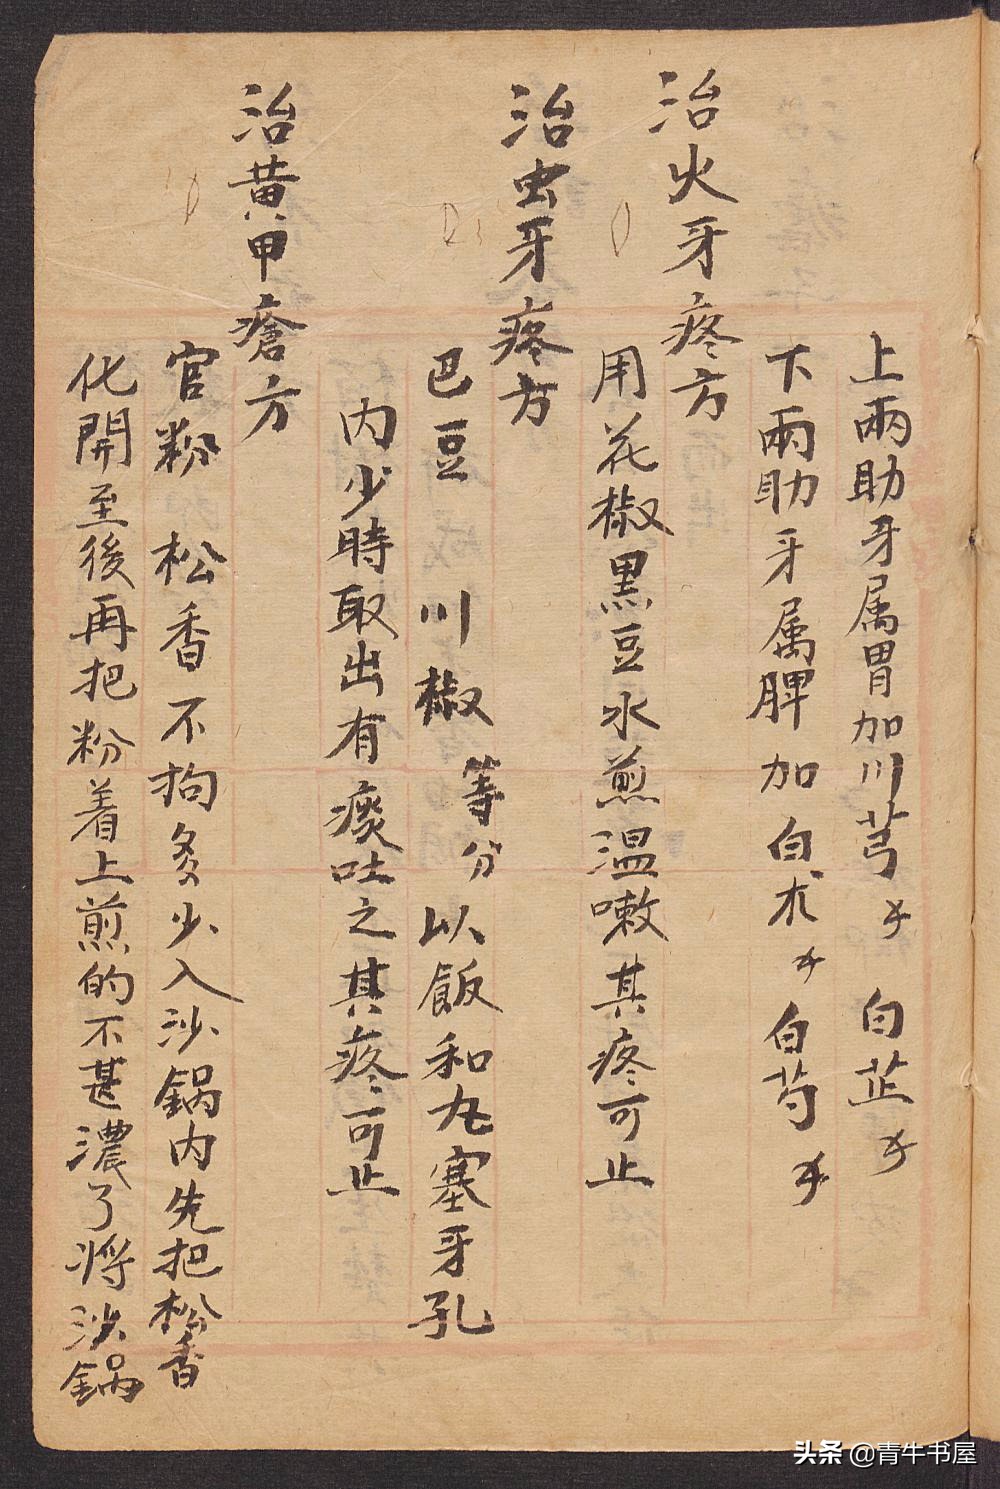 上兩助牙属胃加川芎 白芷
下兩助牙属脾加白朮 白芍
治火牙疼方
用花椒黒豆水煎温嗽其疼可止
治虫牙疼方
巴豆 川椒 等分 以飯和丸塞牙孔
内少時取出有痰吐之其疼可止
治黄甲瘡方
官粉 松香不拘多少入沙鍋内先把松香
化開至後再把粉着上煎的不甚濃了将沙鍋
头条 @青牛书屋